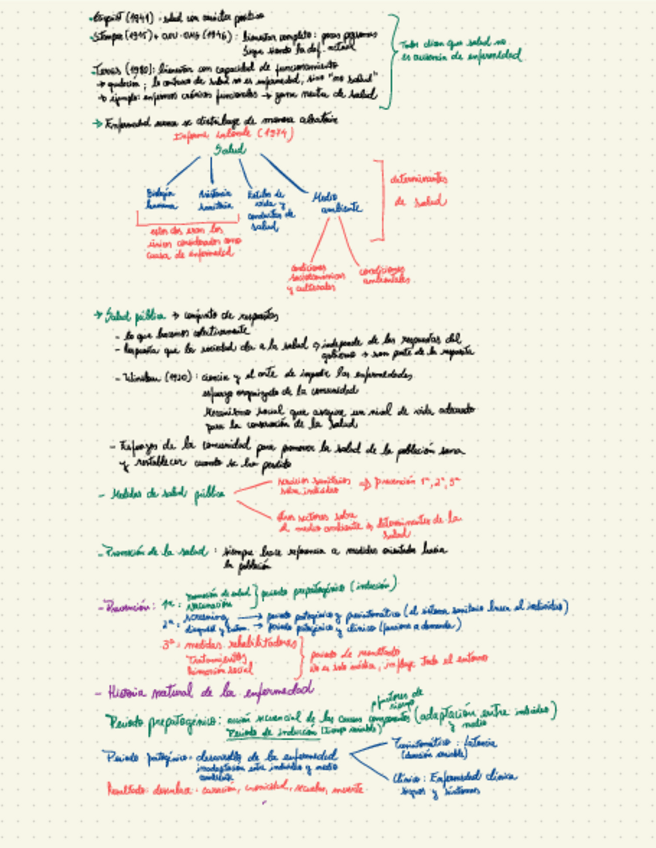 (1941) · salud con carácter positivo
· Stampar (1945) + OMS (1946) : bienestar completo : pocas personas
Sigue siendo la def. actual
· Terris (1980): bienestar con capacidad de funcionamiento
→ ; lo contrario de salud no es enfermedad, sino "no salud"
→ ejemplo: enfermos crónicos funcionales → zona neutra de salud
Todos dicen que salud no
es ausencia de enfermedad
→ Enfermedad nunca se distribuye de manera aleatoria
Informe Lalonde (1974)
Salud
Biología
humana
Asistencia
sanitaria
Estilos de
vida y
conductas de
salud
Medio
ambiente
determinantes
de salud
estos dos eran los
únicos considerados como
causa de enfermedad
condiciones
socioeconómicas
y culturales
condiciones
ambientales
→ Salud pública → conjunto de respuestas
- lo que hacemos colectivamente
- respuesta que la sociedad da a la salud → independe de las respuestas del
gobierno → son parte de la respuesta
- Winslow (1920) : ciencia y el arte de impedir las enfermedades
esfuerzo organizado de la comunidad
Mecanismo social que asegure un nivel de vida adecuado
para la conservación de la salud
- Esfuerzos de la comunidad para promover la salud de la población sana
y restablecer cuando se ha perdido
- Medidas de salud pública
servicios sanitarios
sobre individuos ⇒ Prevención 1ª, 2ª, 3ª
otros sectores sobre
el medio ambiente determinantes de la
salud
- Promoción de la salud : siempre hace referencia a medidas orientadas hacia
la población
- Prevención: 1ª : promoción de salud
vacunación
periodo prepatogénico (inducción)
2ª : screening → periodo patogénico y presintomático (el sistema sanitario busca al individuo)
→ periodo patogénico y clínico (funciona a demanda)
3ª = medidas rehabilitadoras
Tratamientos
social
periodo de resultado
no es solo médica, influye todo el entorno
- Historia natural de la enfermedad
factores de
riesgo
Periodo prepatogénico: acción secuencial de las causas componentes (adaptación entre individuo
y medio)
Periodo de inducción (tiempo variable)
Periodo patogénico · desarrollo de la enfermedad
inadaptación entre individuo y medio
ambiente
Presintomático : latencia
(duración variable)
Clínico : Enfermedad clínica
signos y síntomas
Resultado: desenlace · curación, cronicidad, secuelas, muerte